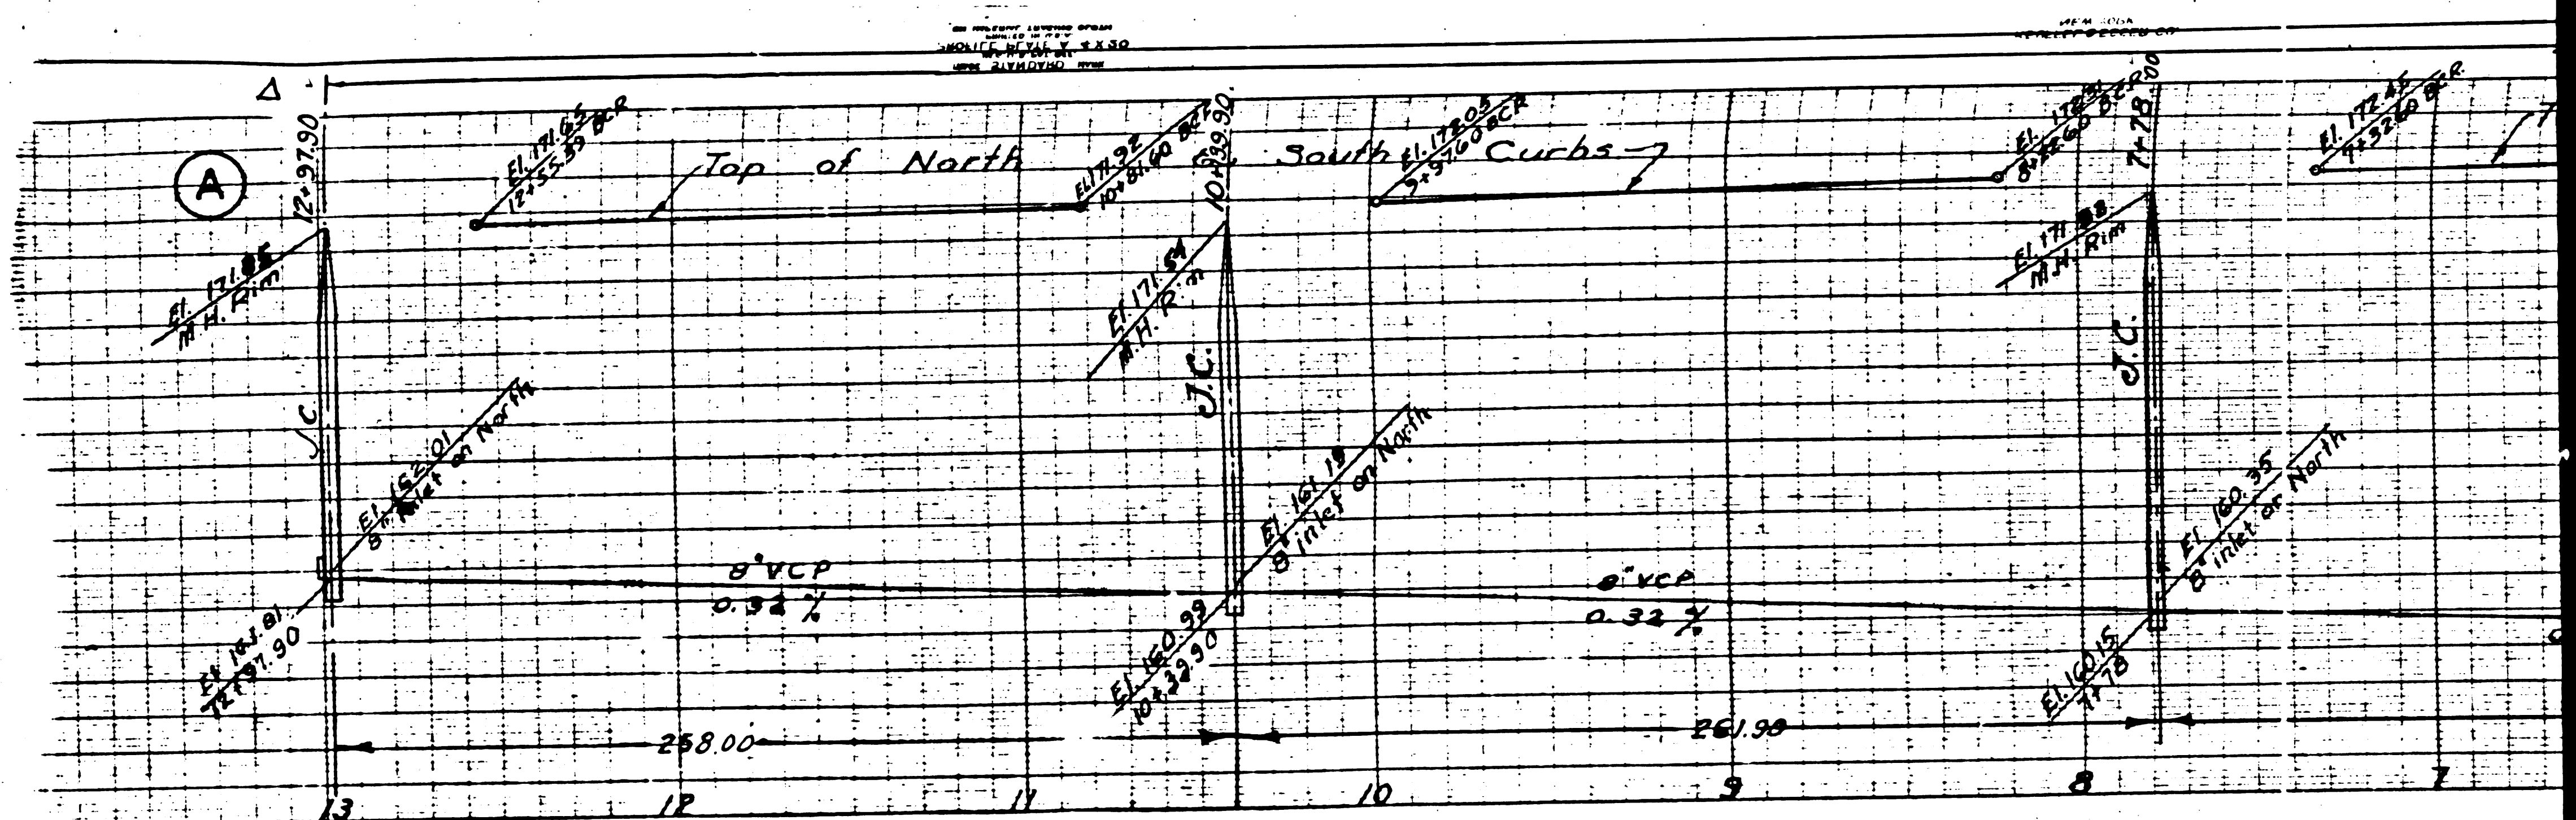 Δ
A
12+97.90
El. 171.65
12+55.39 BCR
Top of North & South Curbs
El. 171.92
10+81.60 BCR
10+39.90.
El. 172.05
9+97.60 BCR
El. 172.31
8+22.60 BCR
7+78.00
El. 172.45
7+32.60 BCR.
El. 171.85
M.H. Rim
El. 171.54
M.H. Rim
El. 171.88
M.H. Rim
J.C.
J.C.
J.C.
El. 162.01
8" Inlet on North
El. 161.19
8" inlet on North
El. 160.35
8" inlet on North
8" VCP
0.32 %
8" VCP
0.32 %
El. 161.81
12+97.90
El. 160.99
10+39.90
El. 160.15
7+78
258.00
261.90
13 12 11 10 9 8 7